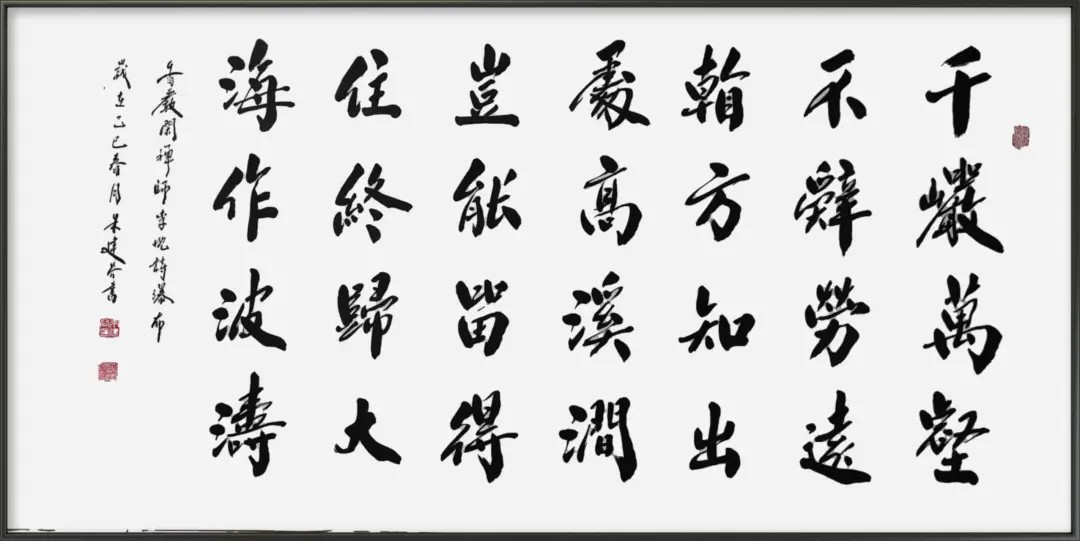 千巖萬壑
不辭勞遠
看方知出
處高溪澗
豈能留得
住終歸大
海作波濤
香嚴閑禪師李忱詩瀑布
歲在乙巳春月建書